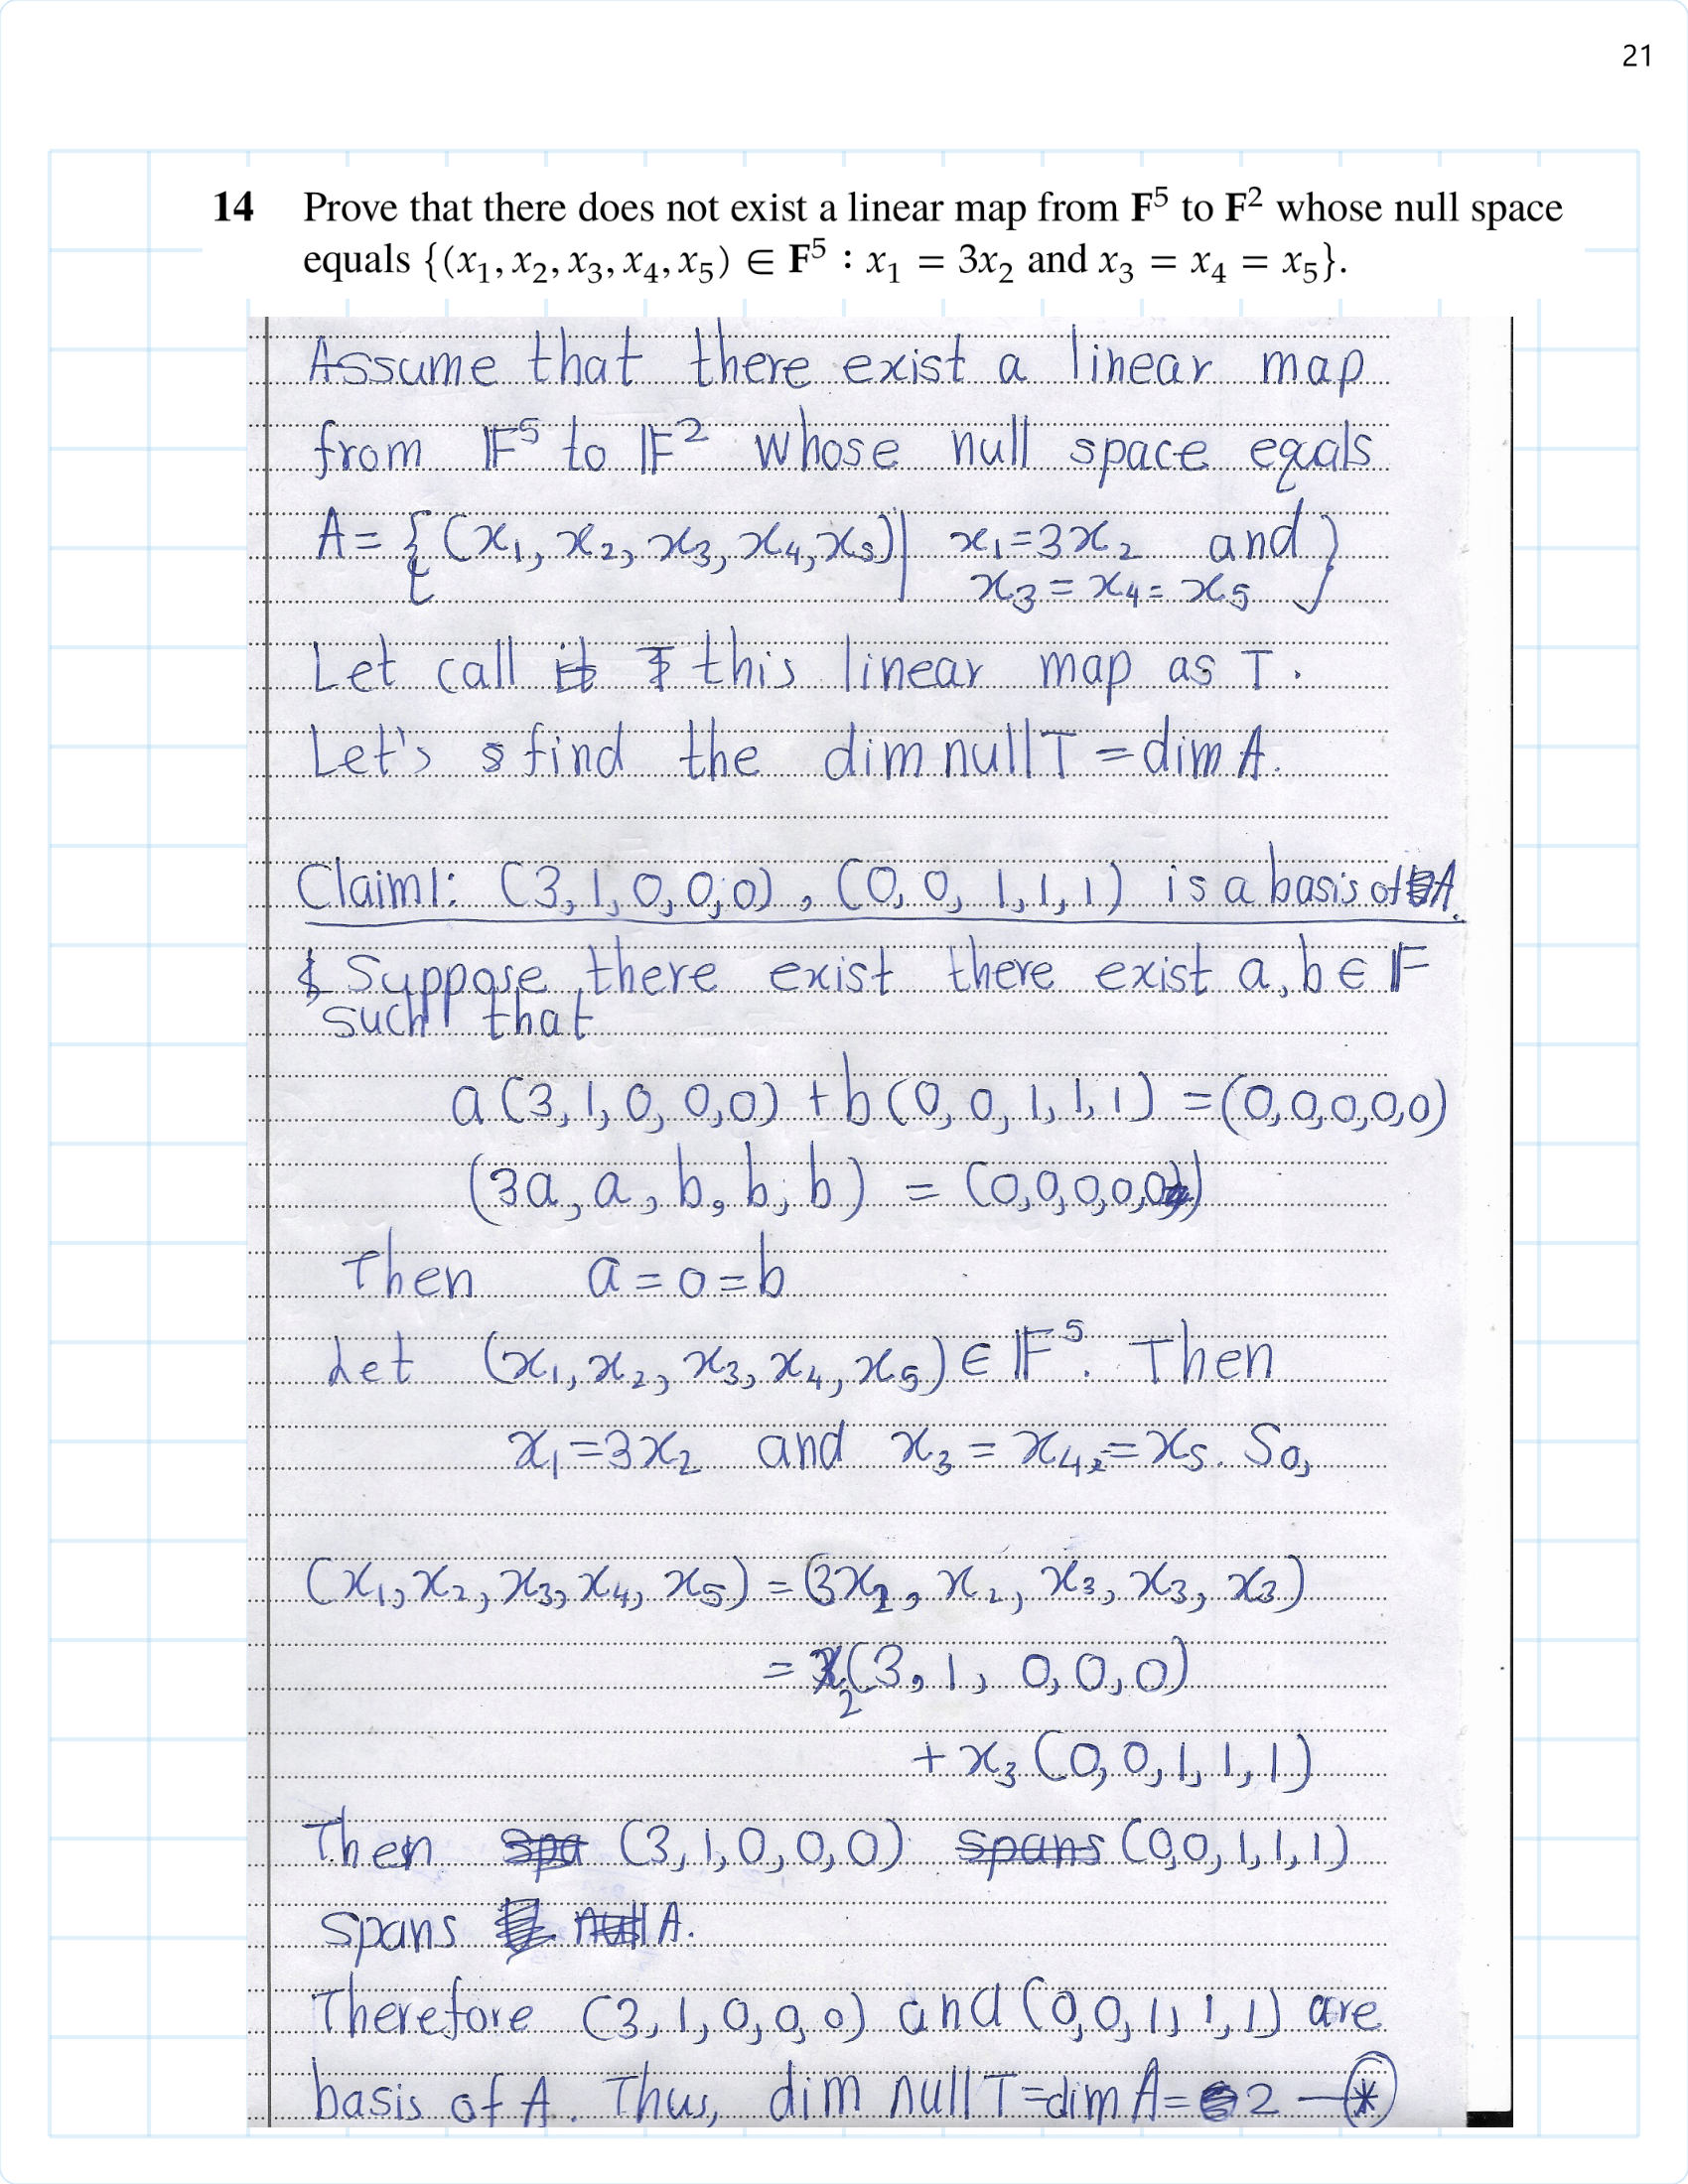 21
14 Prove that there does not exist a linear map from F⁵ to F² whose null space
equals {(x₁, x₂, x₃, x₄, x₅) ∈ F⁵ : x₁ = 3x₂ and x₃ = x₄ = x₅}.
Assume that there exist a linear map
from 𝔽⁵ to 𝔽² whose null space equals
A = {(x₁, x₂, x₃, x₄, x₅) | x₁ = 3x₂ and
x₃ = x₄ = x₅}
Let call this linear map as T.
Let's find the dim null T = dim A.
Claim1: (3, 1, 0, 0, 0), (0, 0, 1, 1, 1) is a basis of A.
Suppose there exist there exist a, b ∈ 𝔽
such that
a(3, 1, 0, 0, 0) + b(0, 0, 1, 1, 1) = (0, 0, 0, 0, 0)
(3a, a, b, b, b) = (0, 0, 0, 0, 0)
Then a = 0 = b
Let (x₁, x₂, x₃, x₄, x₅) ∈ 𝔽⁵. Then
x₁ = 3x₂ and x₃ = x₄ = x₅. So,
(x₁, x₂, x₃, x₄, x₅) = (3x₂, x₂, x₃, x₃, x₃)
= x₂(3, 1, 0, 0, 0)
+ x₃(0, 0, 1, 1, 1)
Then (3, 1, 0, 0, 0) (0, 0, 1, 1, 1)
spans A.
Therefore (3, 1, 0, 0, 0) and (0, 0, 1, 1, 1) are
basis of A. Thus, dim null T = dim A = 2 — ⊛